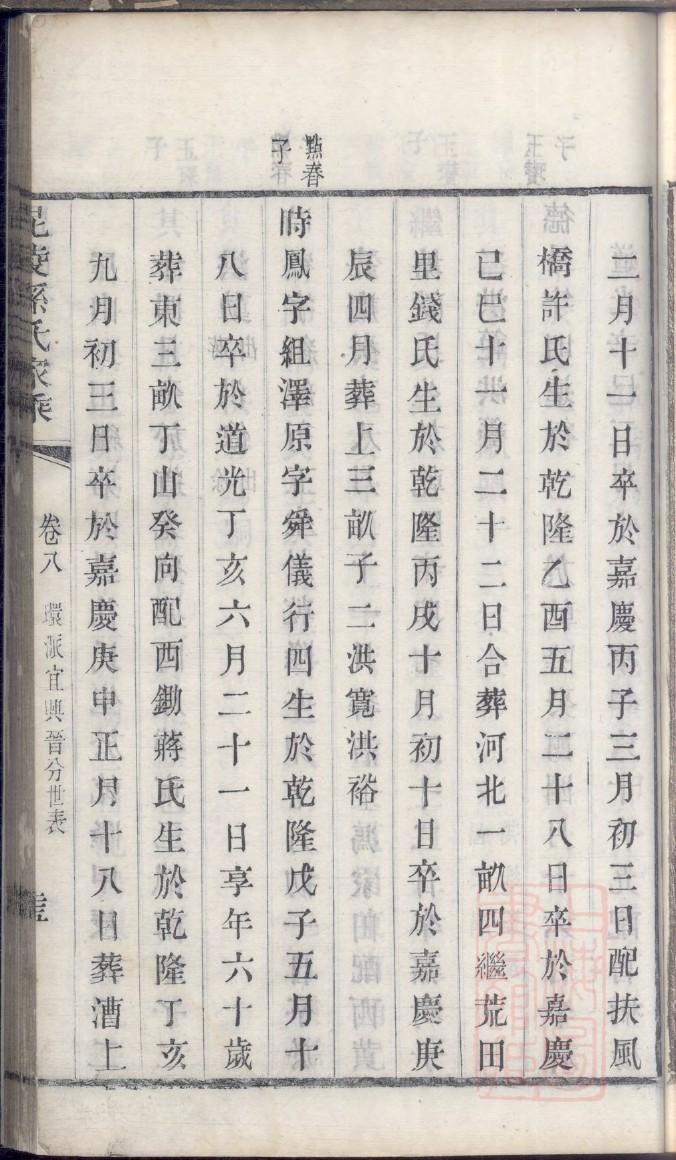 二月十一日卒於嘉慶丙子三月初三日配扶風
橋許氏生於乾隆乙酉五月二十八日卒於嘉慶
己巳十一月二十二日合葬河北一畝四繼荒田
里錢氏生於乾隆丙戌十月初十日卒於嘉慶庚
辰四月葬上三畝子二洪寬洪裕
點春
子
時鳳字組澤原字舜儀行四生於乾隆戊子五月十
八日卒於道光丁亥六月二十一日享年六十歲
葬東三畝丁山癸向配西鋤蔣氏生於乾隆丁亥
九月初三日卒於嘉慶庚申正月十八日葬漕上
毘陵孫氏家乘
卷八 環派宜興晉分世表